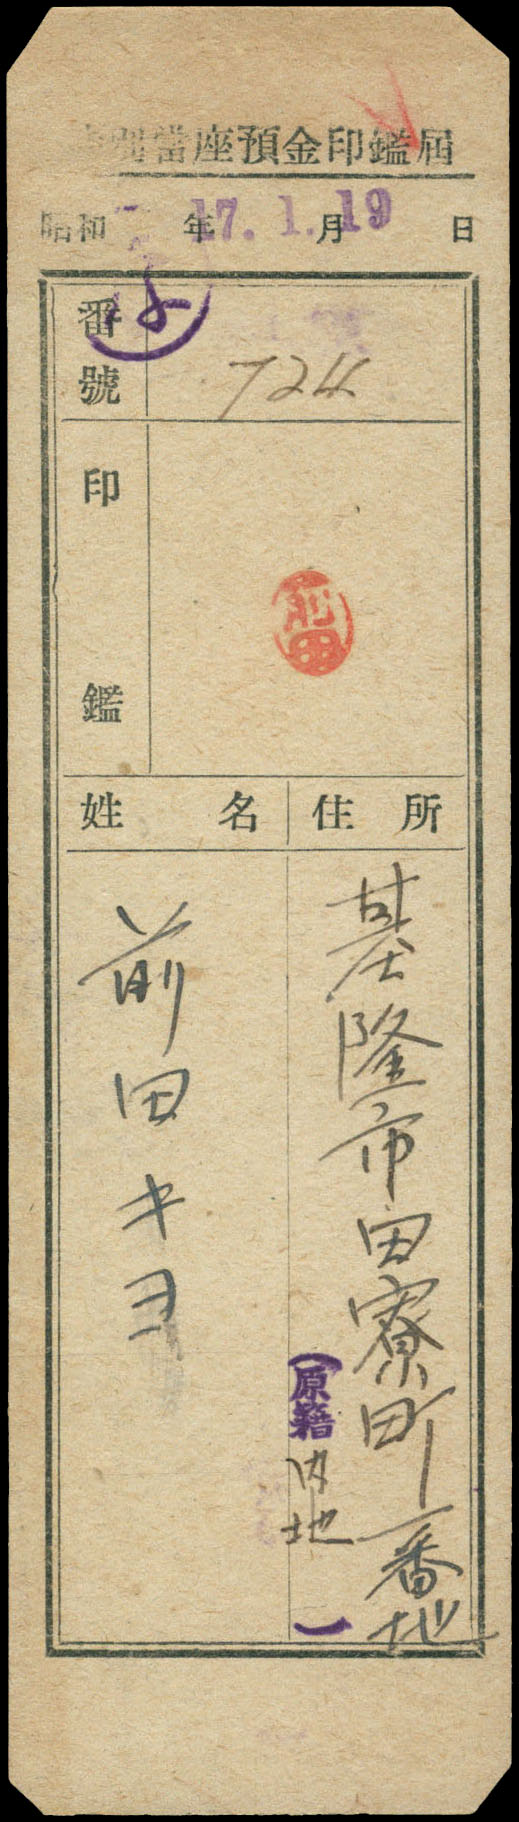 特別當座預金印鑑届
昭和 年 月 日
17. 1. 19
番號
724
印鑑
前田
姓名
住所
基隆市田寮町一番地
(原籍 内地 )
前田キヨ